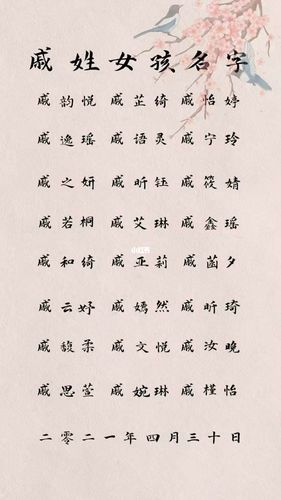 戚姓女孩名字
戚韵悦 戚芷绮 戚怡婷
戚逸瑶 戚语灵 戚宁玲
戚之妍 戚昕钰 戚筱婧
戚若桐 戚艾琳 戚鑫瑶
小红书
戚和绮 戚亚莉 戚菡夕
戚云妤 戚嫣然 戚昕琦
戚馥柔 戚文悦 戚汝晚
戚思萱 戚婉琳 戚槿怡
二零二一年四月三十日